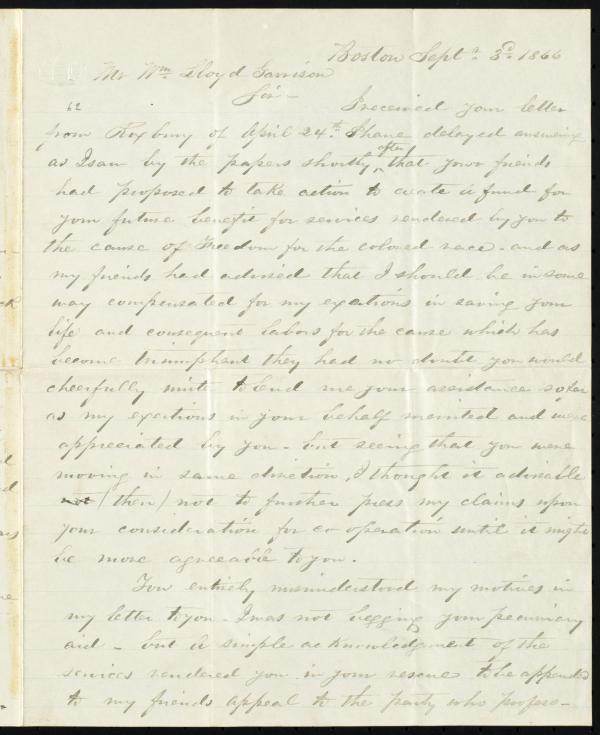 Boston Sept. 3d. 1866
Mr Wm. Lloyd Garrison
Sir -
62 I received your letter
from Roxbury of April 24th. I have delayed answering
as I saw by the papers shortly after that your friends
had proposed to take action to create a fund for
your future benefit for services rendered by you to
the cause of Freedom for the colored race - and as
my friends had advised that I should be in some
way compensated for my exertions in saving your
life and consequent labors for the cause which has
become triumphant they had no doubt you would
cheerfully unite to lend me your assistance so far
as my exertions in your behalf merited and were
appreciated by you - but seeing that you were
moving in same direction, I thought it advisable
not (then) not to further press my claims upon
your consideration for co operation until it might
be more agreeable to you.
You entirely misunderstood my motives in
my letter to you. I was not begging your pecuniary
aid - but a simple acknowledgment of the
services rendered you in your rescue to be appended
to my friends appeal to the party who profess-